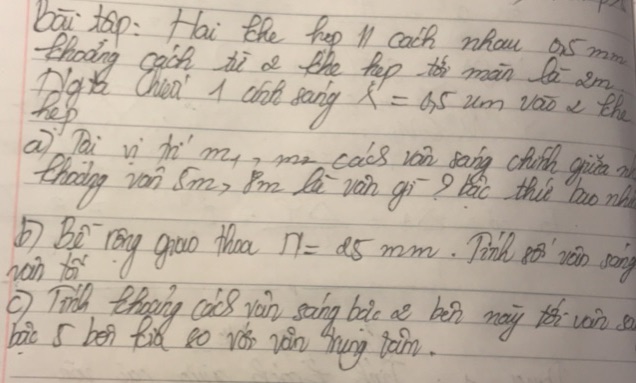 Bài tập: Hai khe hẹp // cách nhau 0,5 mm
khoảng cách từ 2 khe hẹp tới màn là 2m.
Ngta chiếu 1 ánh sáng λ = 0,5 um vào 2 khe
hẹp
a) Tại vị trí m1, m2 cách vân sáng chính giữa
khoảng vân 5m, 8m là vân gì? bậc thứ bao
b) Bề rộng giao thoa = 25 mm. Tính số vân sáng
vân tối
c) Tính khoảng cách vân sáng bậc 2 bên này tới vân
bậc 5 bên kia so với vân trung tâm.